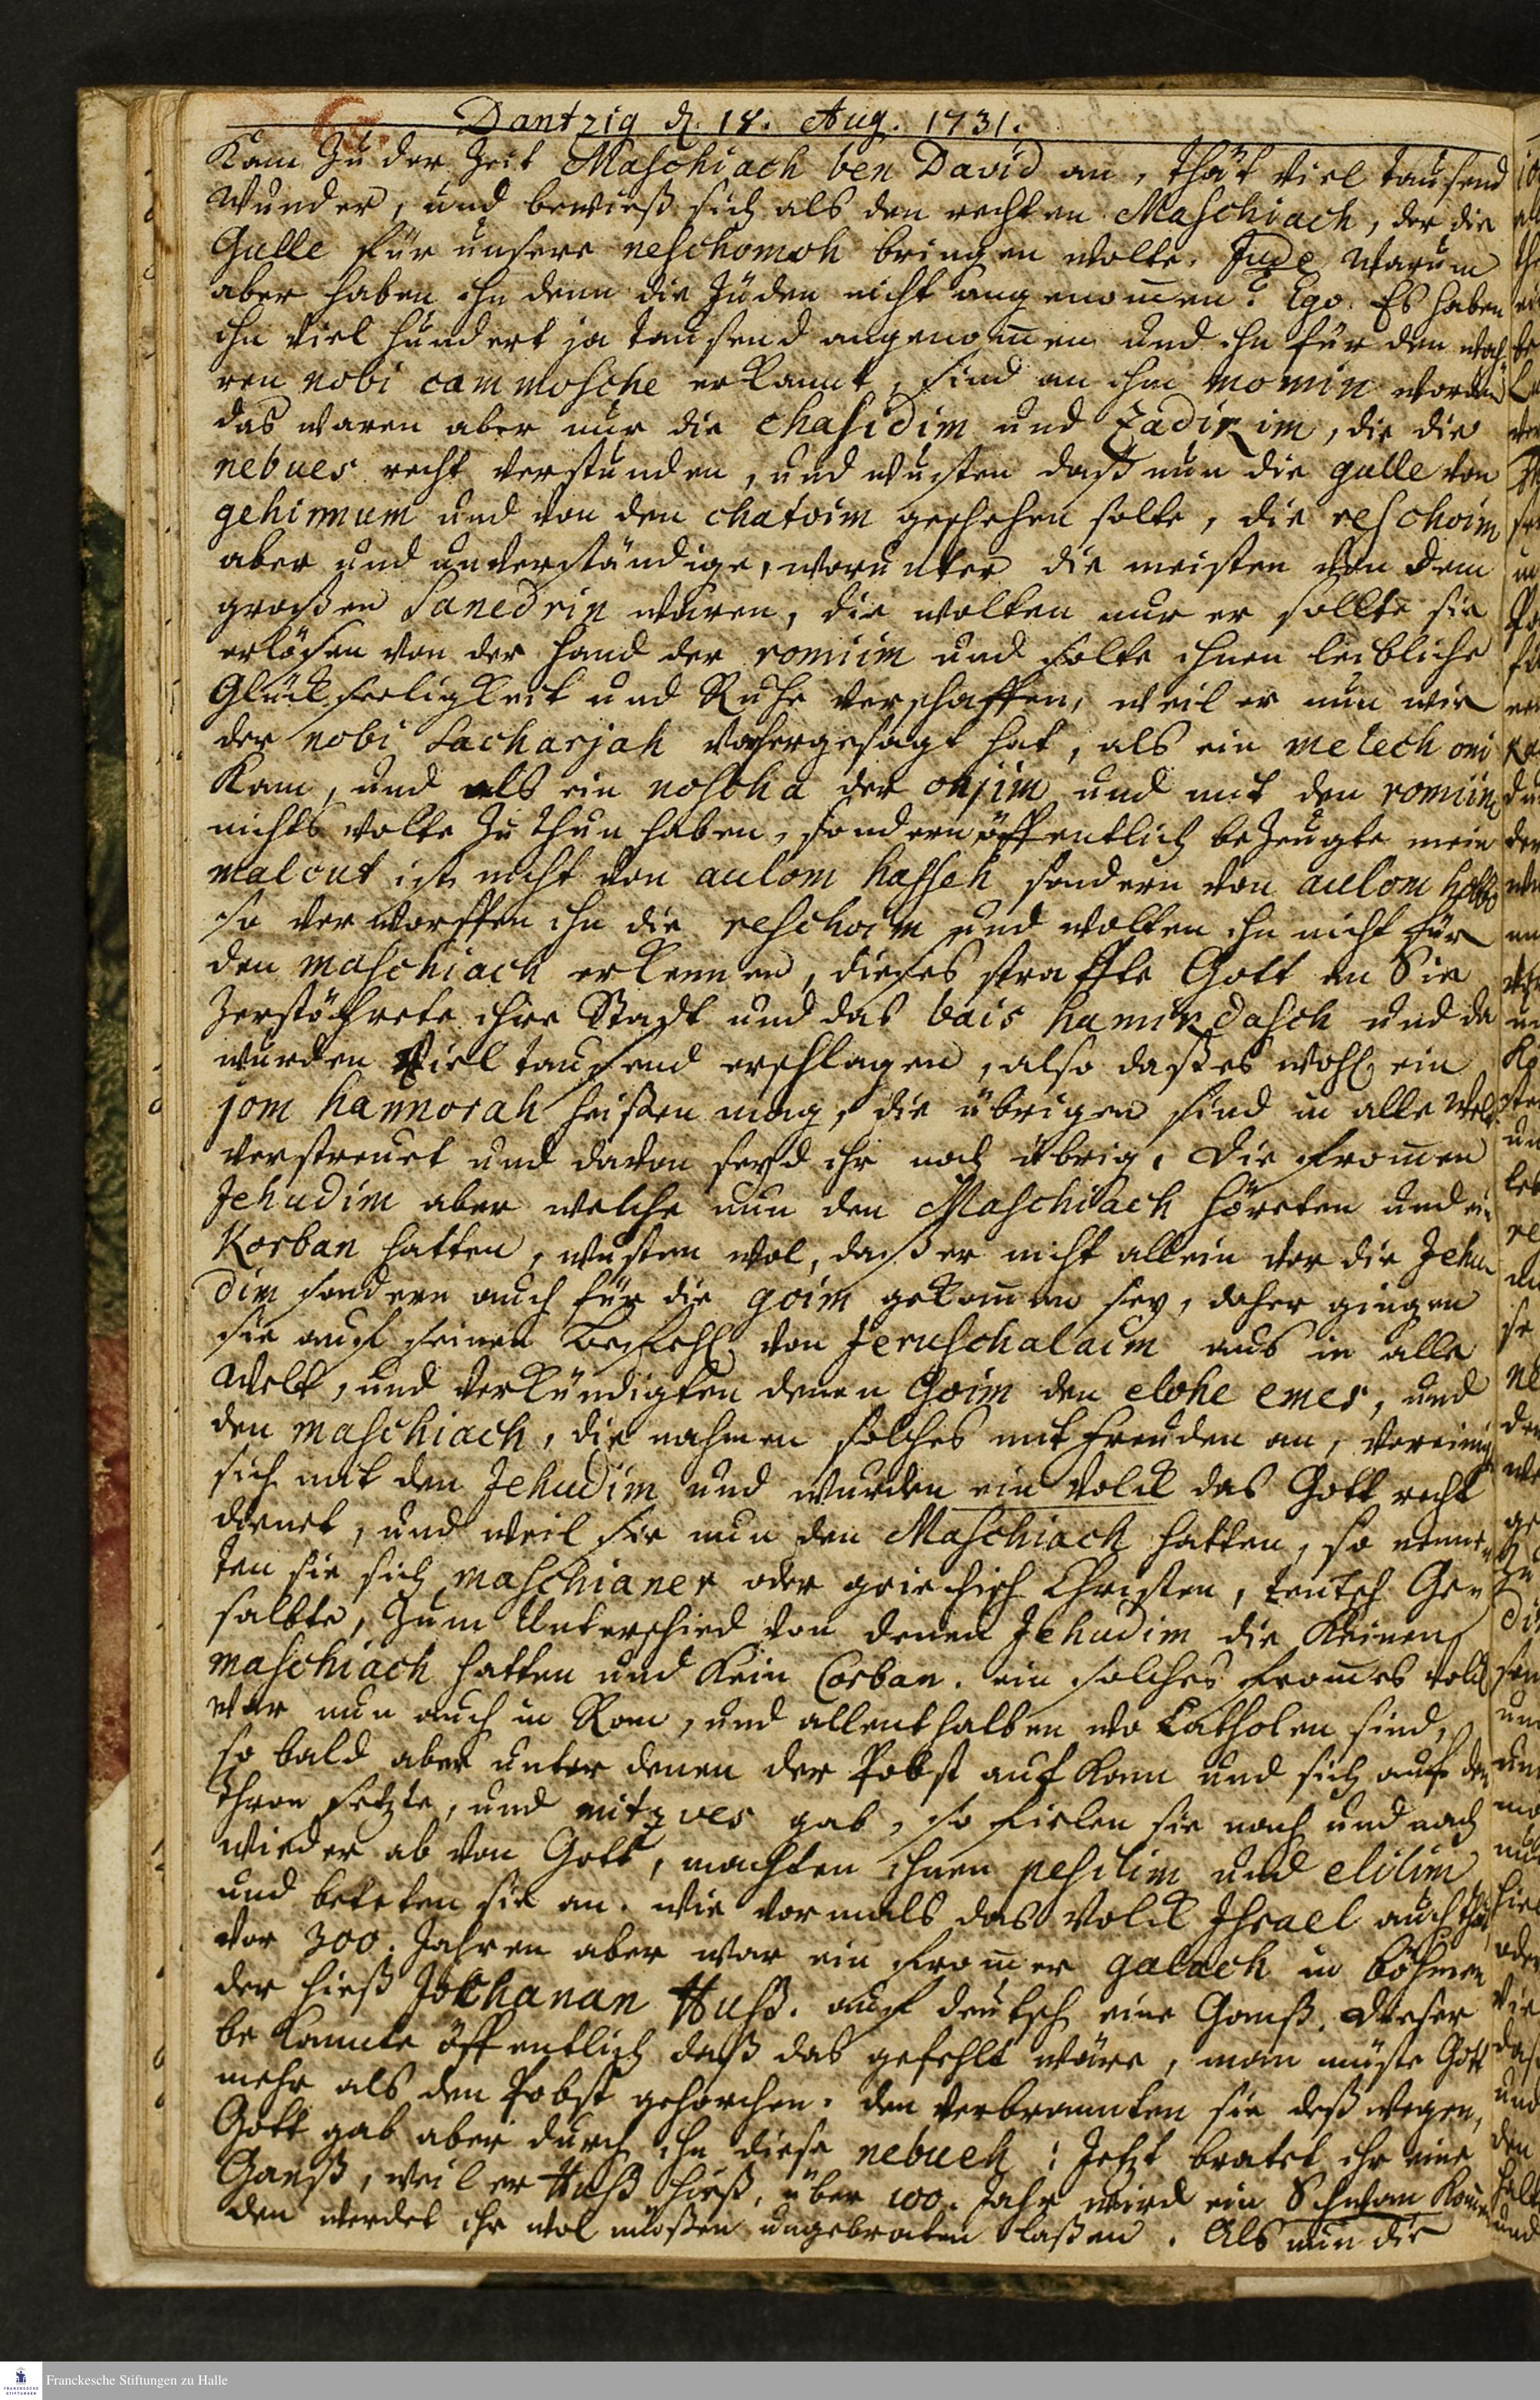 Dantzig d. 18. Aug. 1731.
Kam zu der Zeit Maschiach ben David an, thät viel tausend
Wunder, und bewieß sich als den rechten Maschiach, der die
Gulle für unsere neschomoh bringen wolte. Jude Warum
aber haben ihn denn die Jüden nicht angenom̄en? Ego. Es haben
ihn viel hundert ja tausend angenom̄en und ihn für den wah
ren nobi cammosche erkannt, sind an ihm momin worden
das waren aber nur die chasidim und Zadikim, die die
nebues recht verstunden, und wusten daß nun die gulle von
gehinnum und von den chatoim geschehen solte, die reschoim
aber und unverständige, worunter die meisten von dem
großen Sanedrin waren, die wolten nur er sollte sie
erlösen von der Hand der romiim und solte ihnen leibliche
Glückseeligkeit und Ruhe verschaffen, weil er nun wie
der nobi Sacharjah vorhergesagt hat, als ein melech oni
kam, und als ein der onjim und mit den romiim
nichts wolte zu thun haben, sondern öffentlich bezeugte mein
malcut ist nicht von aulom hasseh sondern von aulom habbo
so verworffen ihn die reschoim und wolten ihn nicht für
den maschiach erkennen, dieses straffte Gott an Sie
Zerstöhrete ihre Stadt und das bais hamikdasch und da
wurden viel tausend erschlagen, also daß es wohl ein
jom hannorah heißen mag, die übrigen sind in alle Welt
verstreuet und davon seyd ihr noch übrig. Die from̄en
Jehudim aber welche nun den Maschiach höreten und ein
Korban hatten, wusten wol, daß er nicht allein vor die Jehu
dim sondern auch für die goim gekom̄en sey, daher gingen
sie auf seinen Befehl von Jeruschalaim aus in alle
Welt, und verkündigten denen Goim den elohe emes, und
den maschiach, die nahmen solches mit Freuden an, vereinig
sich mit den Jehudim und wurden ein Volck das Gott recht
dienet, und weil sie nun den Maschiach hatten, so nenne-
ten sie sich maschianer oder griechisch Christen, teutsch Ge-
salbte, zum Unterschied von denen Jehudim die keinen
maschiach hatten und kein Corban. ein solches from̄es volck
war nun auch in Rom, und allenthalben wo Catholen sind,
so bald aber unter denen der Pobst auf kam und sich auf den
Thron setzte, und mitzves gab, so fielen sie nach und nach
wieder ab von Gott, machten ihnen pesilim und elilim
und beteten sie an. wie vormals das Volck Israel auch thät,
vor 300. Jahren aber war ein from̄er galach in Böhmen
der hieß Jochanan Huß. auf deutsch eine Ganß. Dieser
bekannte öffentlich daß das gefehlt wäre, man müste Gott
mehr als den Pobst gehorchen. den verbrannten sie deß wegen,
Gott gab aber durch ihn diese nebueh: Jetzt bratet ihr eine
Ganß, weil er Huß hieß, über 100. Jahr wird ein Schwan kom̄en
den werdet ihr wol müßen ungebraten laßen. Als nun die
Franckesche Stiftungen zu Halle